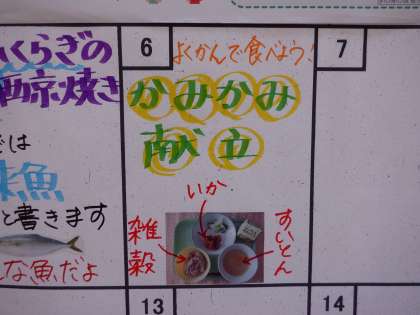 くらぎの
西京焼き
では
味魚
と書きます
な魚だよ
6
よくかんで食べよう!
かみかみ
献立
いか
雑穀
すいとん
7
13
14